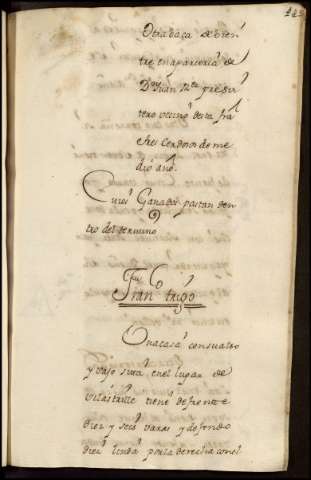 Otra baca de bien
tre en aparceria de
Dn Juan
tero vecino desta fra
tres Cerdos de me
dio año
Cuios Ganados pastan den
tro del termino
Fran trigo
Una casa con su alto
y vajo sita en el lugar de
Vilastrille tiene de frente
diez y seis varas y de fondo
diez linda por la derecha con el